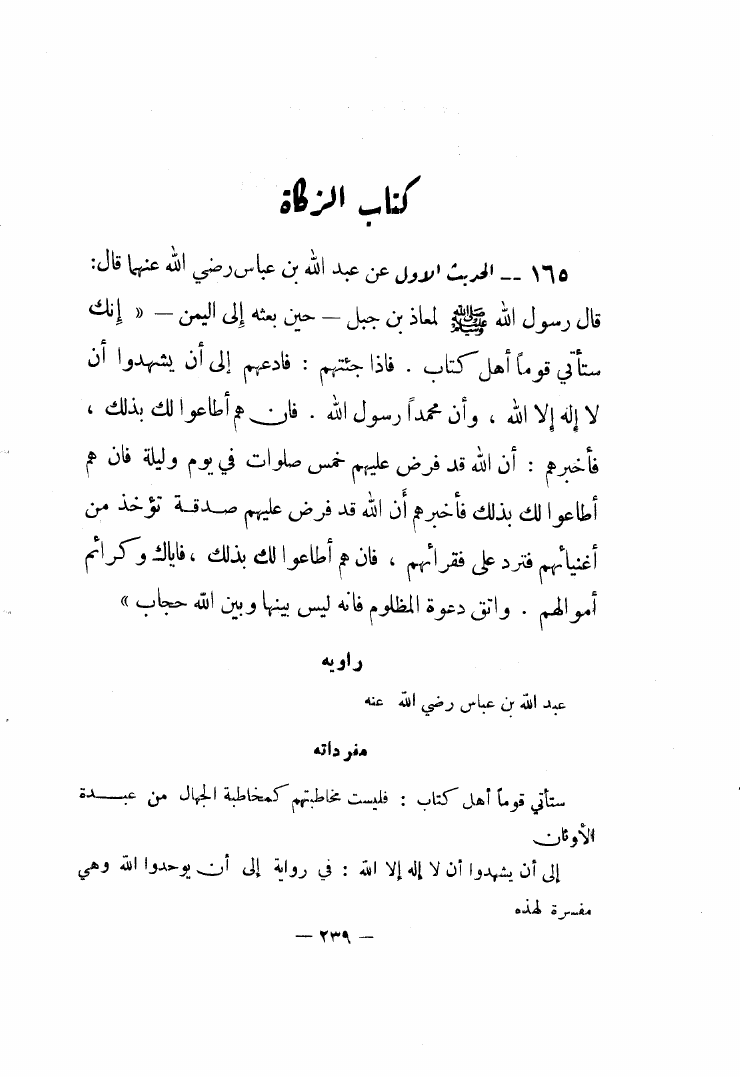 كتاب الزكاة
١٦٥ -- الحديث الاول عن عبد الله بن عباس رضي الله عنهما قال:
قال رسول الله ﷺ لمعاذ بن جبل – حين بعثه إلى اليمن – « إنك
ستأتي قوماً أهل كتاب . فاذا جئتهم : فادعهم إلى أن يشهدوا أن
لا إله إلا الله ، وأن محمداً رسول الله . فان هم أطاعوا لك بذلك ،
فأخبرهم : أن الله قد فرض عليهم خمس صلوات في يوم وليلة فان هم
أطاعوا لك بذلك فأخبرهم أن الله قد فرض عليهم صدقة تؤخذ من
أغنيائهم فترد على فقرائهم ، فان هم أطاعوا لك بذلك ، فاياك وكرائم
أموالهم . واتق دعوة المظلوم فانه ليس بينها وبين الله حجاب »
راويه
عبد الله بن عباس رضي الله عنه
مفرداته
ستأتي قوماً أهل كتاب : فليست مخاطبتهم كمخاطبة الجهال من عبدة
الأوثان
إلى أن يشهدوا أن لا إله إلا الله : في رواية إلى أن يوحدوا الله وهي
مفسرة لهذه
– ٢٣٩ –